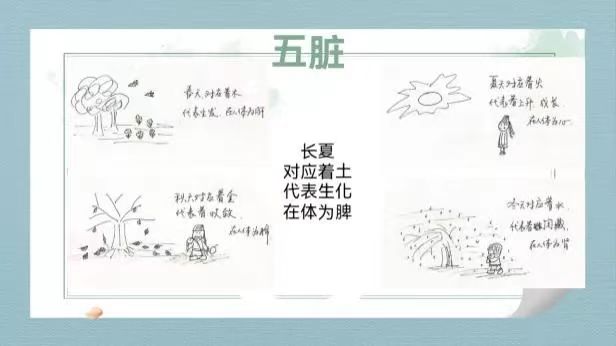 五脏
春天对应着木
代表生发,在人体为肝
夏天对应着火
代表着上升 成长
在人体为心
长夏
对应着土
代表生化
在体为脾
秋天对应着金
代表着收敛
在人体为脾
冬天对应着水
代表着闭藏
在人体为肾